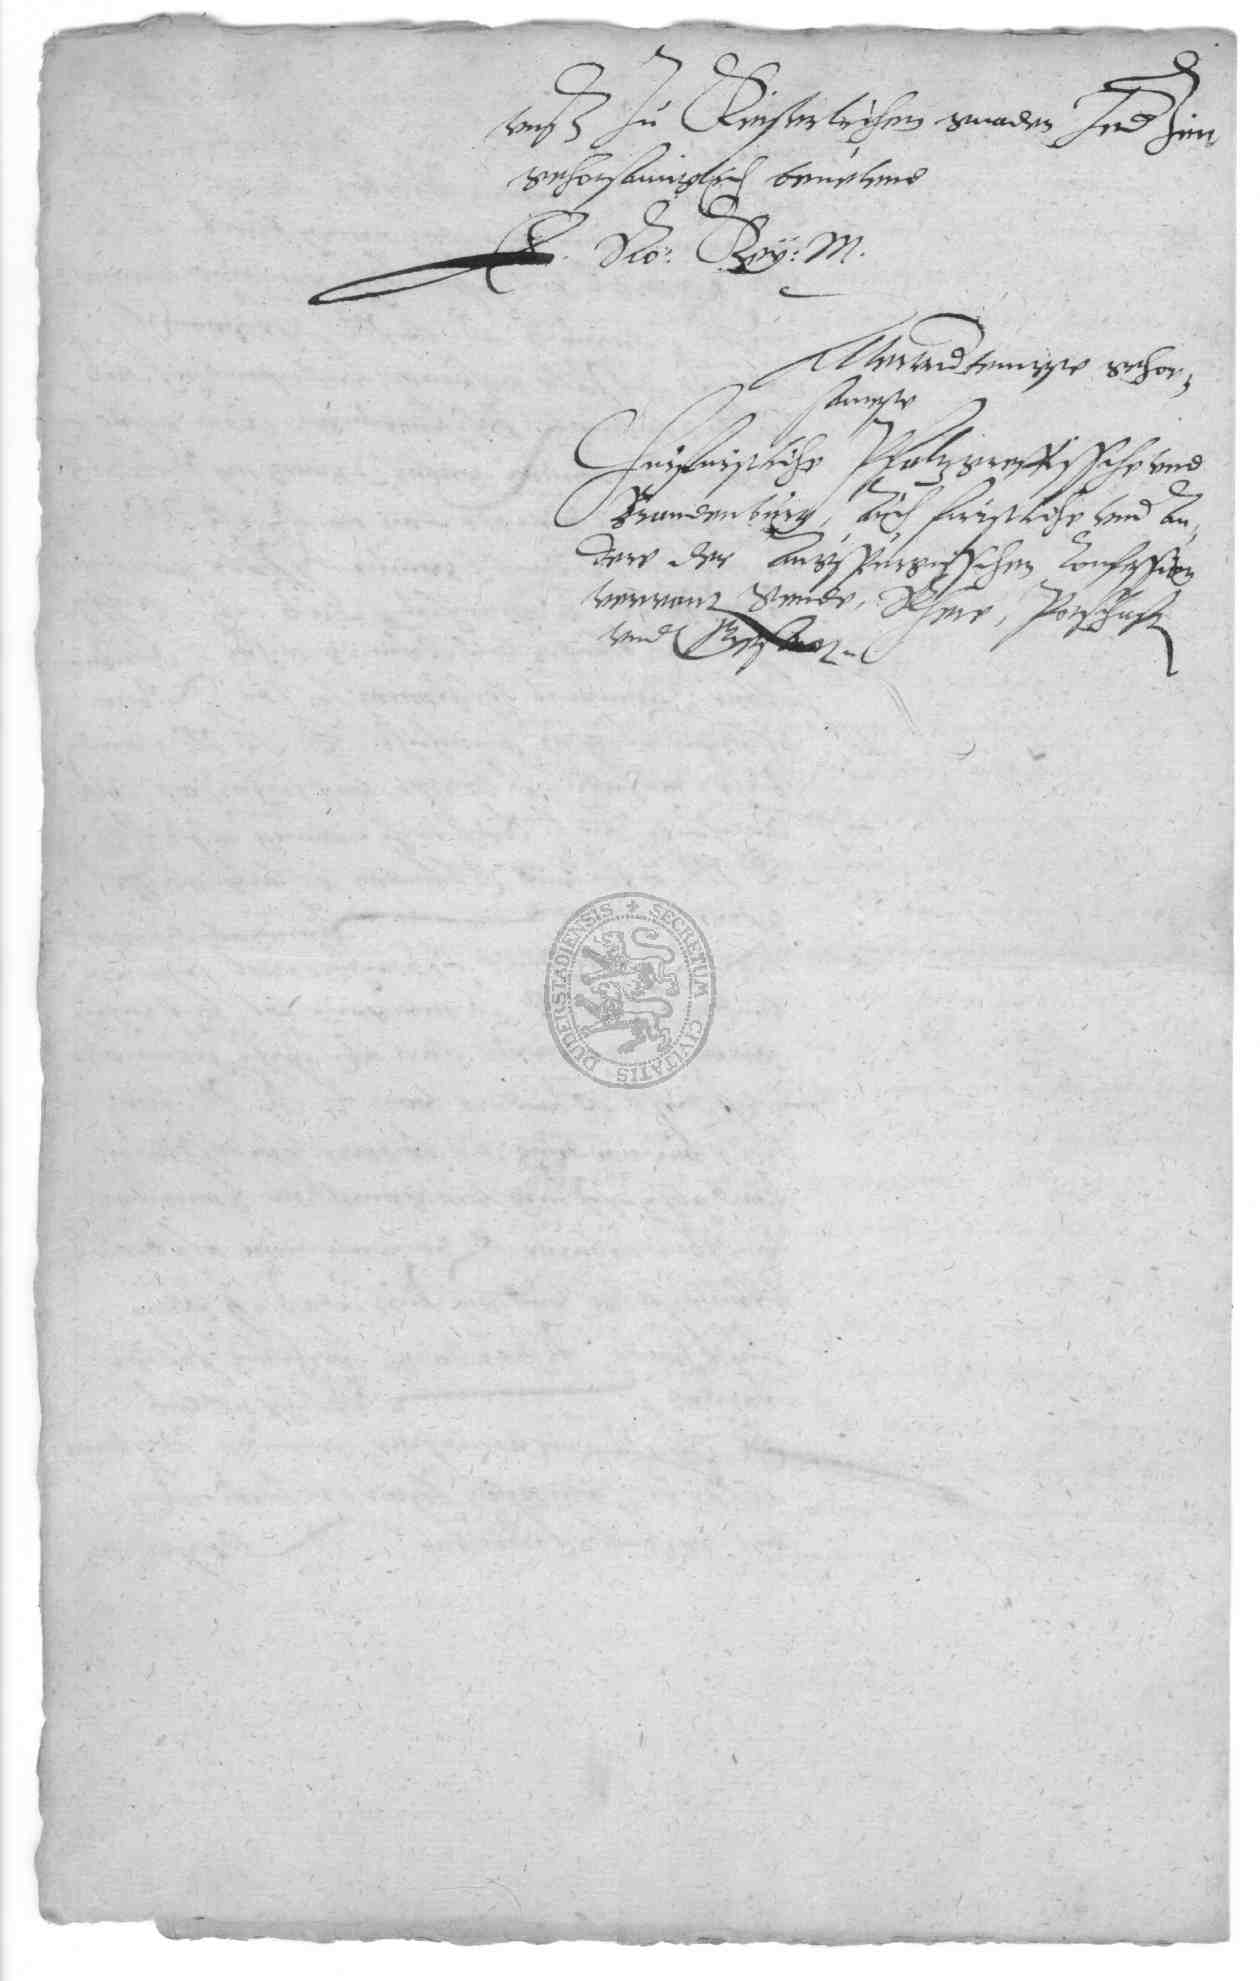 vnß zu Keiserlichen gnaden
gehorsamiglich beuelend
E. Rö: Key: M.
Allervnd tenigste gehor,
sameste
Churfurstliche Pfaltzgreffische vnd
Brandenburg, auch furstliche vnd an,
dere der Augspurgischen Confession
verwant Stende, Rhete, Potschafft
vnd Gesandt
SECRETUM CIVITATIS DUDERSTADIENSIS